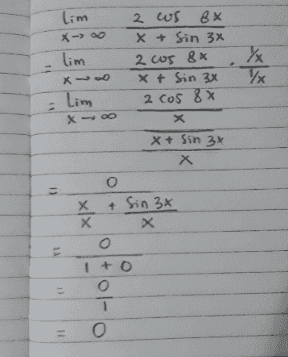 lim 2 cos 8x
x→∞ x + sin 3x
= lim 2 cos 8x . 1/x
x→∞ x + sin 3x 1/x
= lim 2 cos 8x
x→∞ x
x + sin 3x
x
= 0
x + sin 3x
x x
= 0
1 + 0
= 0
1
= 0